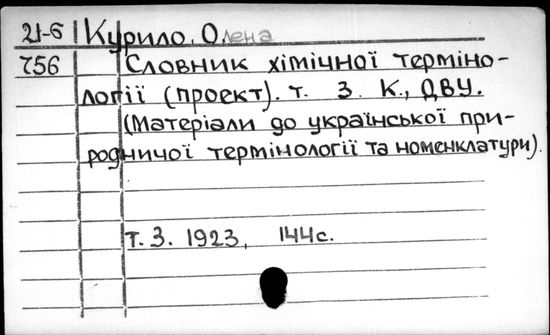 21-6 Курило, Олена
756 Словник хімічної терміно-
логії (проект). т. 3. К., ДВУ.
(Матеріали до української при-
родничої термінології та номенклатури).
т. 3. 1923, 144с.